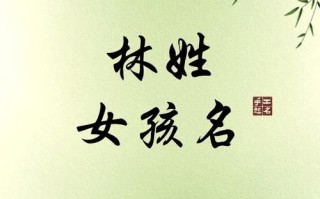 林姓
女孩名